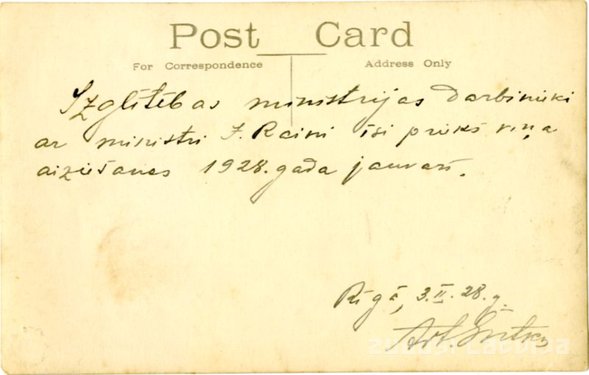 Post Card
For Correspondence Address Only
Izglītības ministrijas darbinieki
ar ministri J. Raini īsi priekš viņa
aiziešanas 1928. gada janvarī.
Rīgā, 3.II.28.g.
Art.